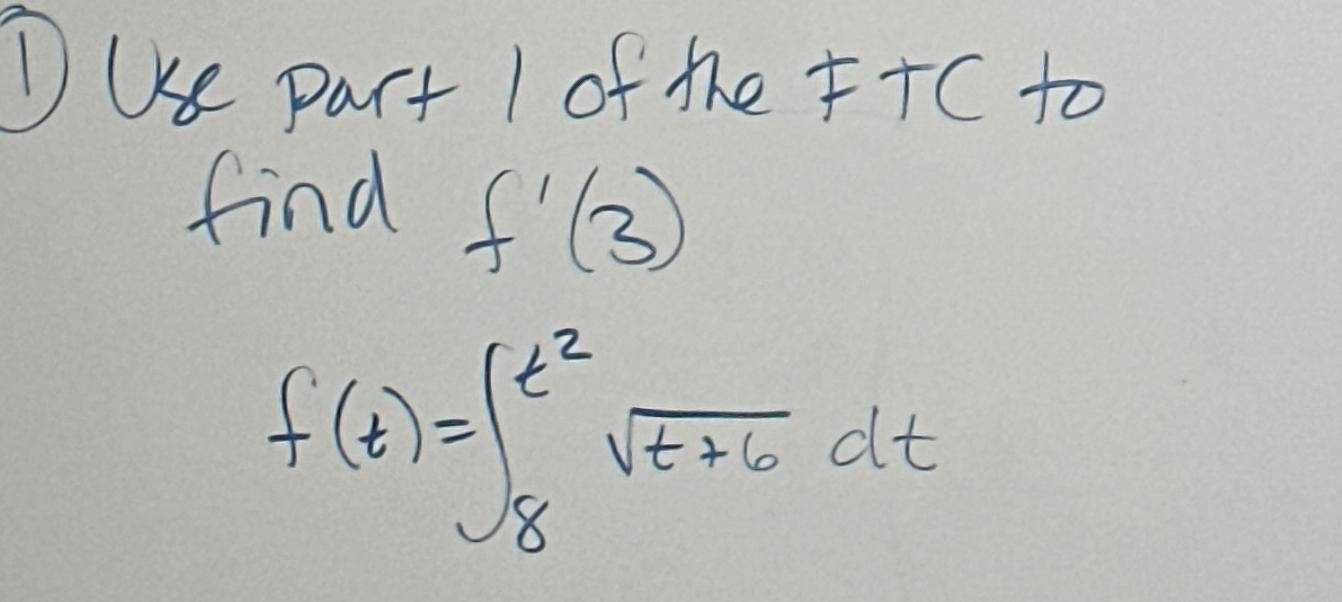 ① Use part 1 of the FTC to
find f'(3)
f(t)=∫₈^{t²} √(t+6) dt